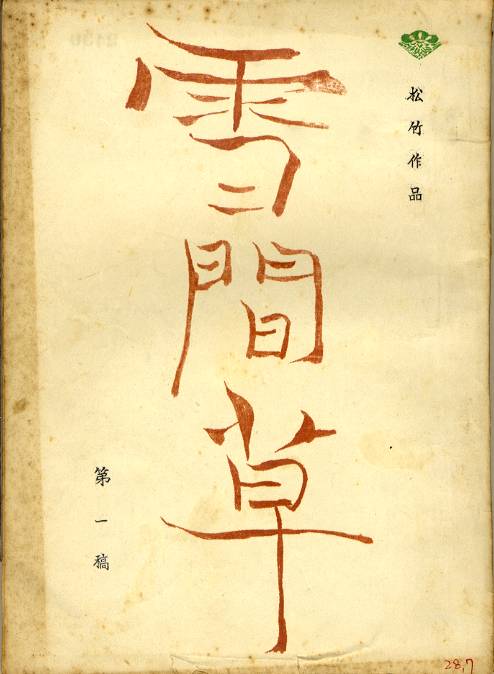 松竹作品
雪間草
第一稿
28,7